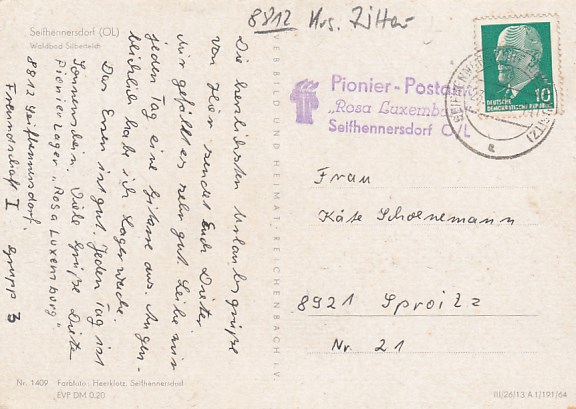 Seifhennersdorf (OL)
Waldbad Silberteich
8812 Krs. Zittau
DEUTSCHE
DEMOKRATISCHE REPUBLIK
10
Pionier-Postamt
„Rosa Luxemburg"
Seifhennersdorf O/L
a
Die herzlichsten Urlaubsgrüße
von hier sendet Euch Dieter.
Mir gefällt es sehr gut. Leihe mir
jeden Tag eine Gitarre aus. Augen-
blicklich habe ich Lagerwache.
Das Essen ist gut. Jeden Tag ist
Sonnenschein. Viele Grüße Dieter
Pionierlager „Rosa Luxemburg"
8812 Seifhennersdorf.
Freundschaft I Grupp 3
VEB BILD UND HEIMAT, REICHENBACH I. V.
Frau
Käte Schoenemann
8921 Sproitz
Nr. 21
Nr. 1409 Farbfoto: Heerklotz, Seifhennersdorf
EVP DM 0.20
III/26/13 A 1/191/64